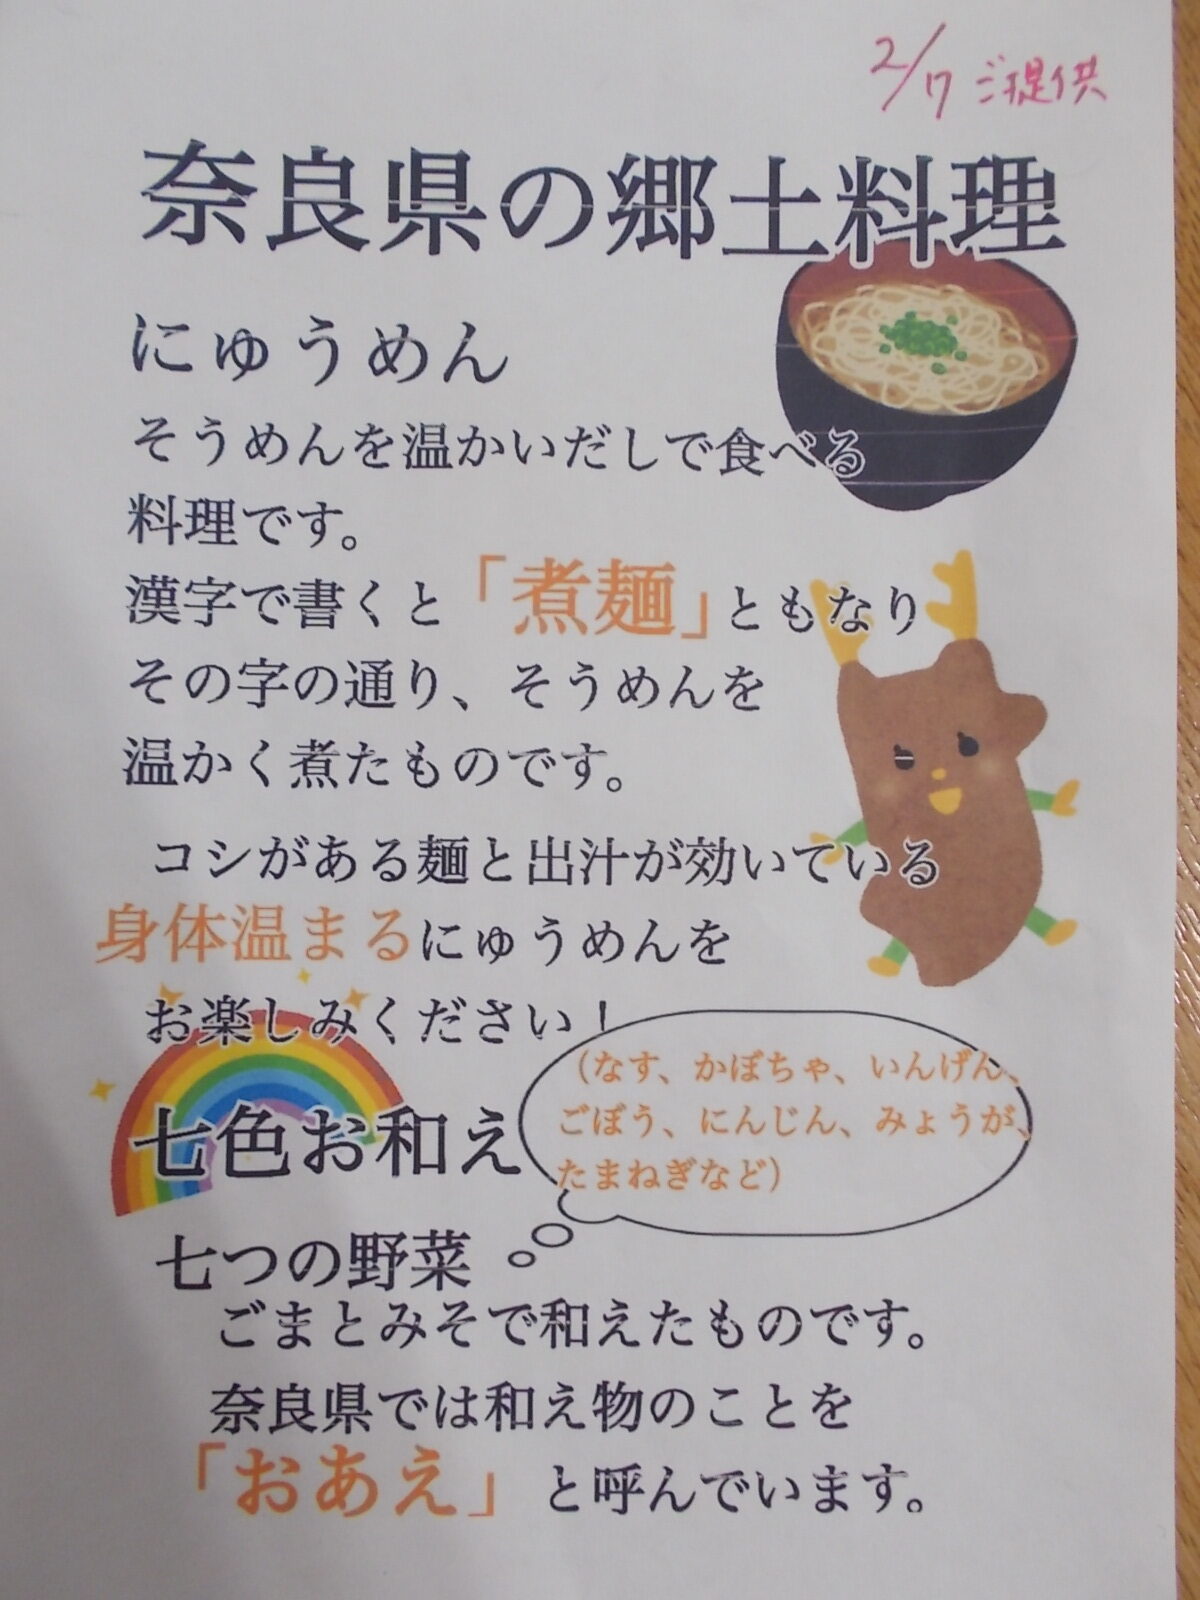 2/7 ご提供
奈良県の郷土料理
にゅうめん
そうめんを温かいだしで食べる
料理です。
漢字で書くと「煮麺」ともなり
その字の通り、そうめんを
温かく煮たものです。
コシがある麺と出汁が効いている
身体温まるにゅうめんを
お楽しみください！
(なす、かぼちゃ、いんげん、
ごぼう、にんじん、みょうが、
たまねぎなど)
七色お和え
七つの野菜
ごまとみそで和えたものです。
奈良県では和え物のことを
「おあえ」と呼んでいます。